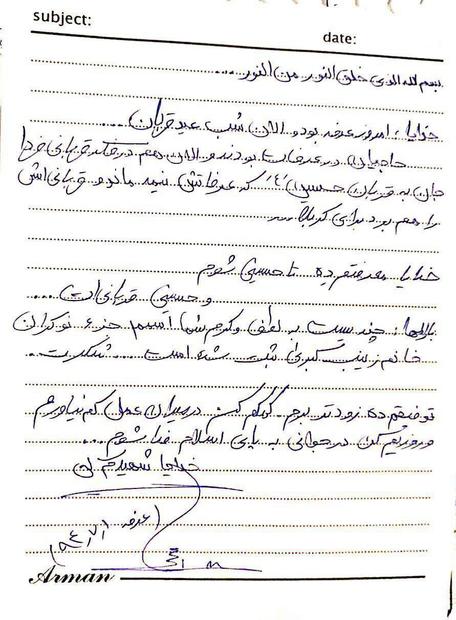 subject:
date:
بسم الله الذی خلق النور من النور....
خدایا، امروز عرفه بود و الان شب عید قربان....
حاجیان در عرفات بودند و الان هم در فکر قربانی فردا
جان به قربان حسین (ع) که عرفاتش نیمه ماند و قربانی‌اش
را هم برد برای کربلا...
خدایا معرفتم ده تا حسینی شوم
و حسینی قربانی‌ات....
بارالها؛ چند است به لطف و کرم شما اسمم جزء نوکران
خانم زینب کبری ثبت شده است.... شکرت..
توفیقم ده زودتر بروم کمکم کن در میدان عمل کم نیاورم
و روزیم کن در جوانی به پای اسلام فدا شوم...
خدایا شهیدم کن
(عرفه ۹۴/۷/۱)
Arman